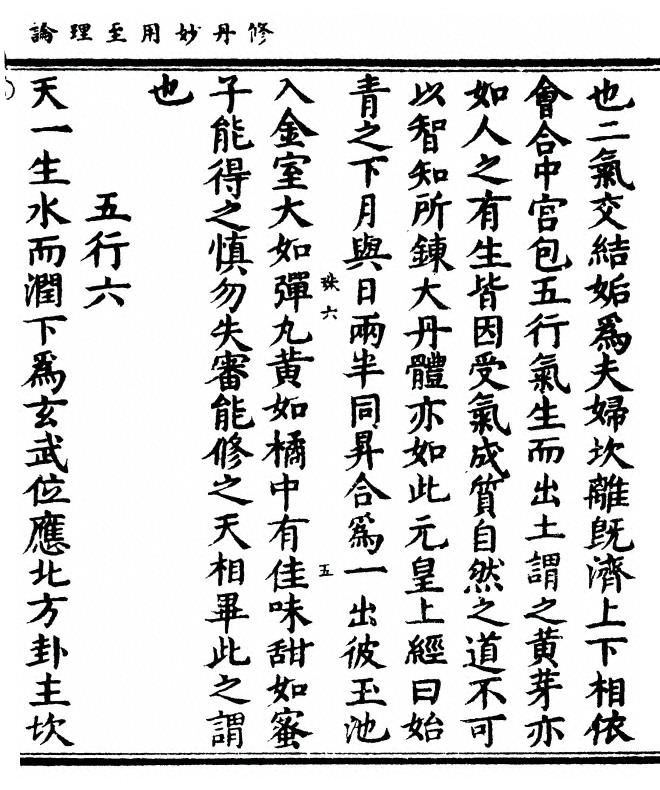 修丹妙用至理論
也二氣交結姤爲夫婦坎離既濟上下相依
會合中宮包五行氣生而出土謂之黃芽亦
如人之有生皆因受氣成質自然之道不可
以智知所鍊大丹體亦如此元皇上經曰始
青之下月與日兩半同昇合爲一出彼玉池
珠六
五
入金室大如彈丸黃如橘中有佳味甜如蜜
子能得之慎勿失審能修之天相畢此之謂
也
五行六
天一生水而潤下爲玄武位應北方卦主坎